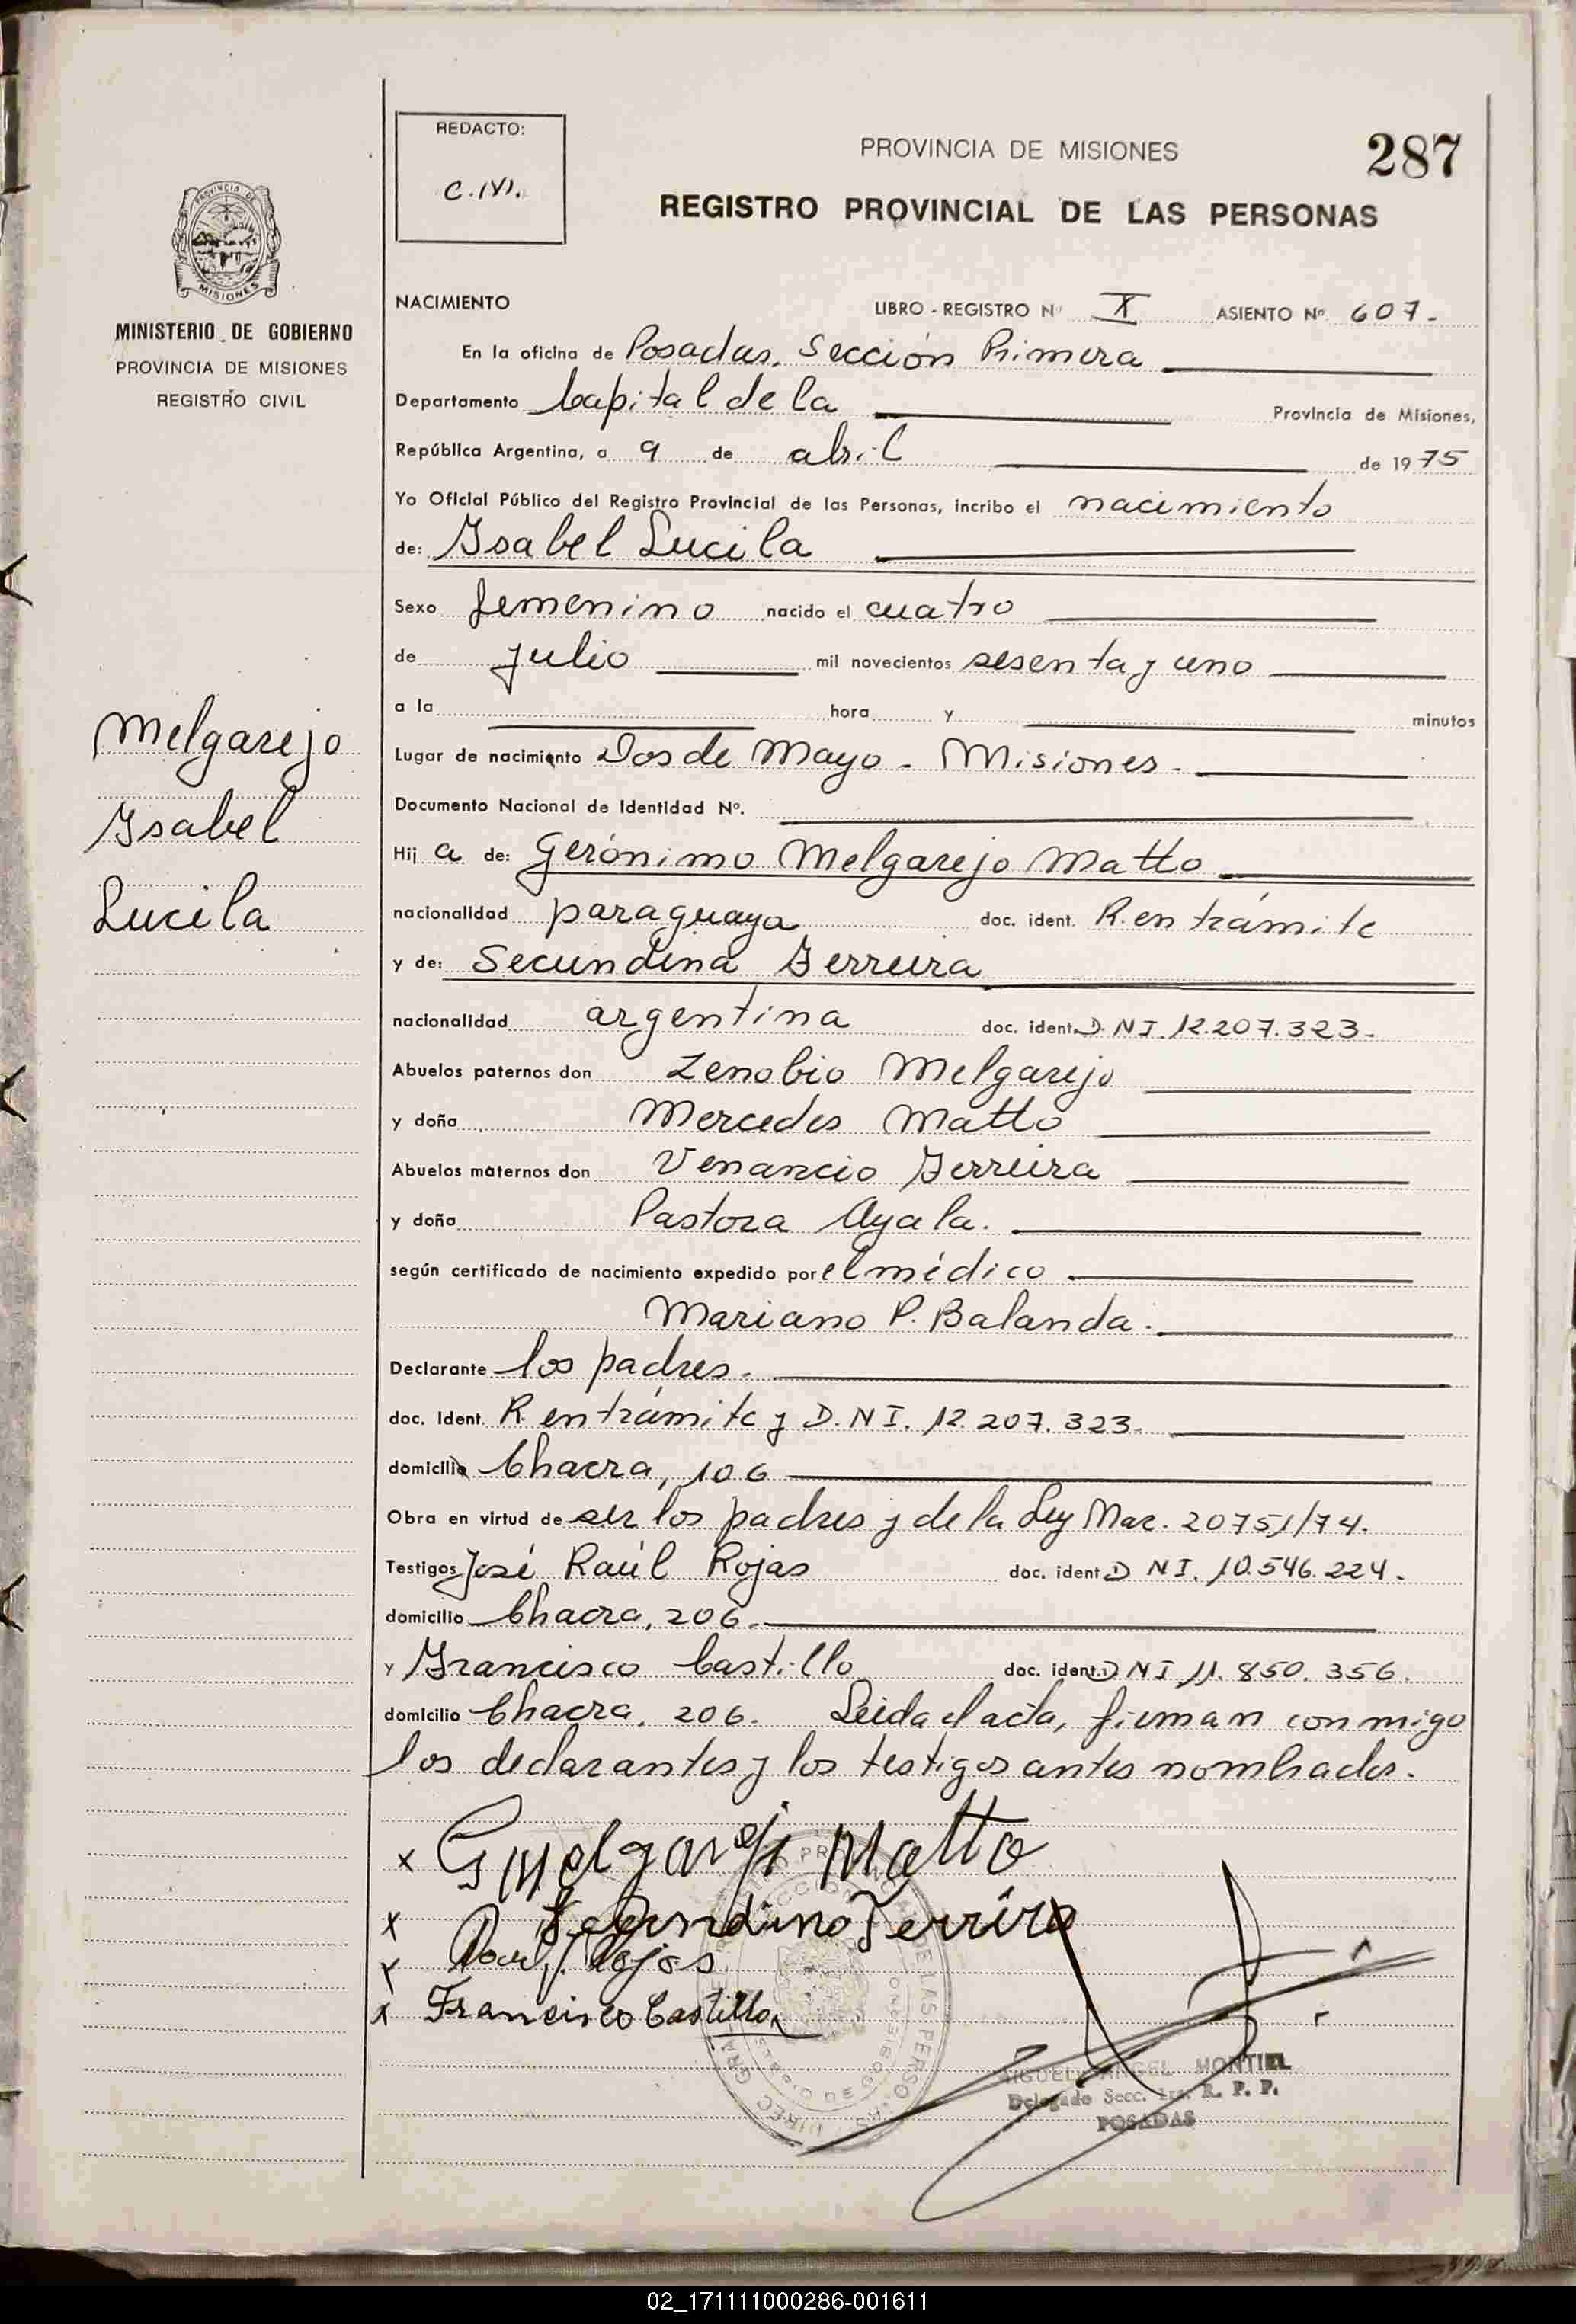 REDACTO:
C.M.
PROVINCIA DE MISIONES
287
REGISTRO PROVINCIAL DE LAS PERSONAS
MISIONES
MINISTERIO DE GOBIERNO
PROVINCIA DE MISIONES
REGISTRO CIVIL
NACIMIENTO LIBRO - REGISTRO Nº X ASIENTO Nº 607.
En la oficina de Posadas, Sección Primera
Departamento Capital de la Provincia de Misiones,
República Argentina, a 9 de abril de 1975
Yo Oficial Público del Registro Provincial de las Personas, incribo el nacimiento
de: Isabel Lucila
Sexo femenino nacido el cuatro
de julio mil novecientos sesenta y uno
a la hora y minutos
Melgarejo
Isabel
Lucila
Lugar de nacimiento Dos de Mayo - Misiones.
Documento Nacional de Identidad Nº.
Hij a de: Gerónimo Melgarejo Matto
nacionalidad paraguaya doc. ident. R. en trámite
y de: Secundina Ferreira
nacionalidad argentina doc. ident. D.N.I. 12.207.323.
Abuelos paternos don Zenobio Melgarejo
y doña Mercedes Matto
Abuelos maternos don Venancio Ferreira
y doña Pastora Ayala.
según certificado de nacimiento expedido por el médico
Mariano P. Balanda.
Declarante los padres.
doc. Ident. R. en trámite y D.N.I. 12.207.323.
domicilio Chacra, 106
Obra en virtud de ser los padres y de la Ley Nac. 20751/74.
Testigos José Raúl Rojas doc. ident. D N I. 10.546.224.
domicilio Chacra, 206.
y Francisco Castillo doc. ident. D N I 11.850.356.
domicilio Chacra, 206. Leida el acta, firman conmigo
los declarantes y los testigos antes nombrados.
x G Melgarejo Matto
x Secundina Ferreira
x Raul J. Rojas
x Francisco Castillo
MIGUEL ANGEL MONTIEL
Delegado Secc. 1ra. R. P. P.
POSADAS
02_171111000286-001611